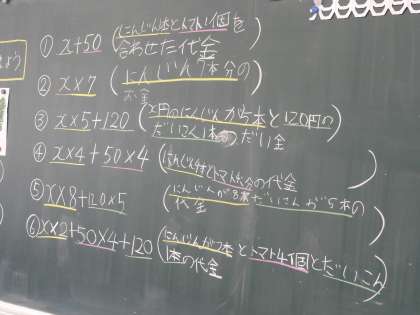 よう
① x+50 (にんじん1本とトマト1個を
合わせた代金)
② x×7 (にんじん7本分の
お金)
③ x×5+120 (x円のにんじんが5本と120円の
だいこん1本のだい金)
④ x×4+50×4 (にんじん4本とトマト4個分の代金)
⑤ x×8+120×5 (にんじんが8本だいこんが5本の
代金)
⑥ x×2+50×4+120 (にんじんが2本とトマト4個とだいこん
1本の代金)